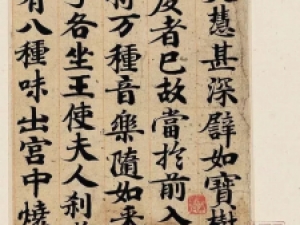 慧甚深譬如寶樹
度者已故當於前入
万種音樂隨如来
各坐王使夫人刹
有八種味出宮中燒